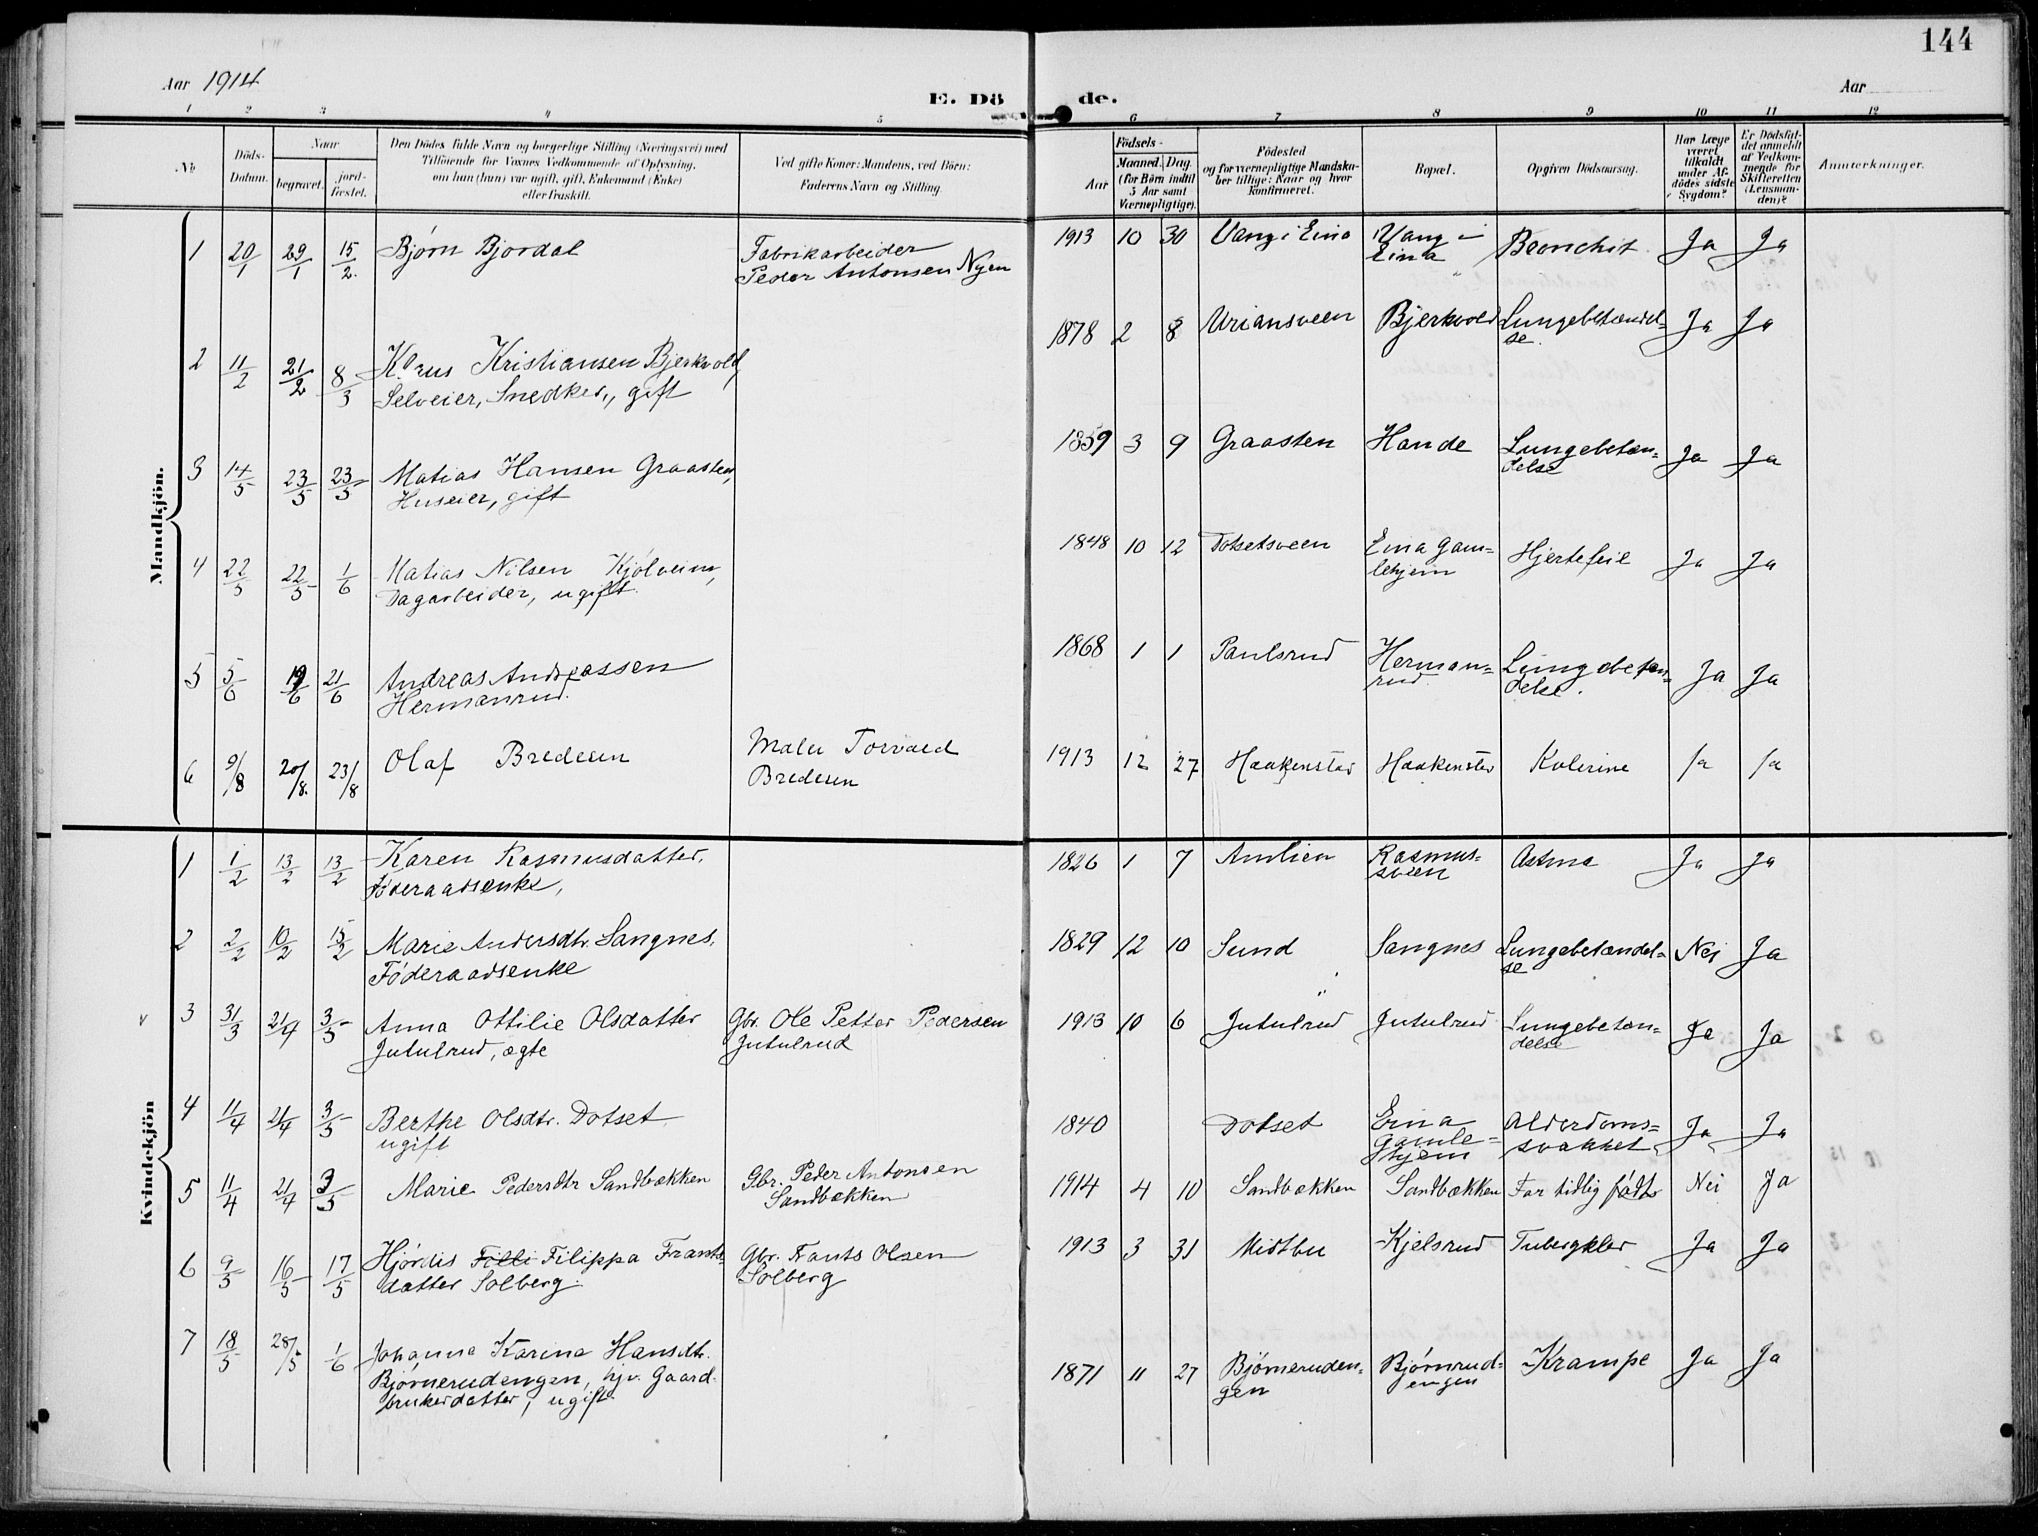 144
Aar 1914
Aar
E. Dö de.
1 2 3 4 5 6 7 8 9 10 11 12
No
Döds-Datum.
Naar
begravet.
jord-fæstet.
Den Dödes fulde Navn og borgerlige Stilling (Næringsvei) med
Tilföiende for Voxnes Vedkommende af Oplysning,
om han (hun) var ugift, gift, Enkemand (Enke)
eller fraskilt.
Ved gifte Koner: Mandens, ved Börn:
Faderens Navn og Stilling.
Födsels-
Aar
Maaned. Dag.
(for Börn indtil
5 Aar samt
Værnepligtige).
Födested
og for værnepligtige Mandska-
ber tillige: Naar og hvor
konfirmeret.
Bopæl.
Opgiven Dödsaarsag.
Har Læge
været
tilkaldt
under Af-
dödes sidste
Sygdom?
Er Dödsfal-
det anmeldt
af Vedkom-
mende for
Skifteretten
(Lensman-
den)?
Anmærkninger.
Mandkjön.
1 20/1 29/1 15/2. Bjørn Bjordal Fabrikarbeider 1913 10 30 Vang i Eina Vang i Bronchit. Ja Ja
Peder Antonsen Nyen Eina
2 11/2 21/2 8/3 Kristiansen Bjerkvold 1878 2 8 Uriansveen Bjerkvold Lungebetændel- Ja Ja
Selveier, Snedker, gift se.
3 14/5 23/5 23/5 Matias Hansen Graasten, 1859 3 9 Graasten Hande Lungebetæn- Ja Ja
Huseier, gift delse
4 22/5 22/5 1/6 Matias Nilsen Kjølveim, 1848 10 12 Totsetsveen Eina Gam- Hjertefeil Ja Ja
Dagarbeider, ugift. lehjem
5 5/6 19/6 21/6 Andreas Andreassen 1868 1 1 Paulsrud Herman- Lungebetæn- Ja Ja
Hermanrud. rud. delse.
6 9/8 20/8. 23/8 Olaf Bredesen Maler Torvald 1913 12 27 Haakenstad Haakenstad Kolerine Ja Ja
Bredesen
Kvindekjön
1 1/2 13/2 13/2 Karen Rasmusdatter, 1826 1 7 Amlien Rasmus- Astma Ja Ja
Føderaadsenke, sveen
2 2/2 10/2 15/2 Marie Andersdtr. Sangnes, 1829 12 10 Sund Sangnes Lungebetændel- Nei Ja
Føderaadsenke se
3 31/3 21/4 3/5 Anna Ottilie Olsdatter Gbr. Ole Petter Pedersen 1913 10 6 Jutulrud Jutulrud Lungebetæn- Ja Ja
Jutulrud, ægte Jutulrud delse
4 11/4 21/4 3/5 Berthe Olsdtr. Dotset 1840 Dotset Eina Alderdoms- Ja Ja
ugift Gamle- svakhet
hjem
5 11/4 21/4 3/5 Marie Pedersdtr Sandbækken Gbr. Peder Antonsen 1914 4 10 Sandbækken Sandbækken For tidlig født Nei Ja
Sandbækken
6 9/5 16/5 17/5 Hjørdis Filli Filippa Frants- Gbr. Frants Olsen 1913 3 31 Midtbu Kjelsrud Tuberkler Ja Ja
datter Solberg. Solberg
7 18/5 28/5 1/6 Johanna Karina Hansdtr. 1871 11 27 Bjørneruden- Bjørnrud- Krampe Ja Ja
Bjørnerudengen, hjv. Gaard- gen engen
brukerdatter, ugift.